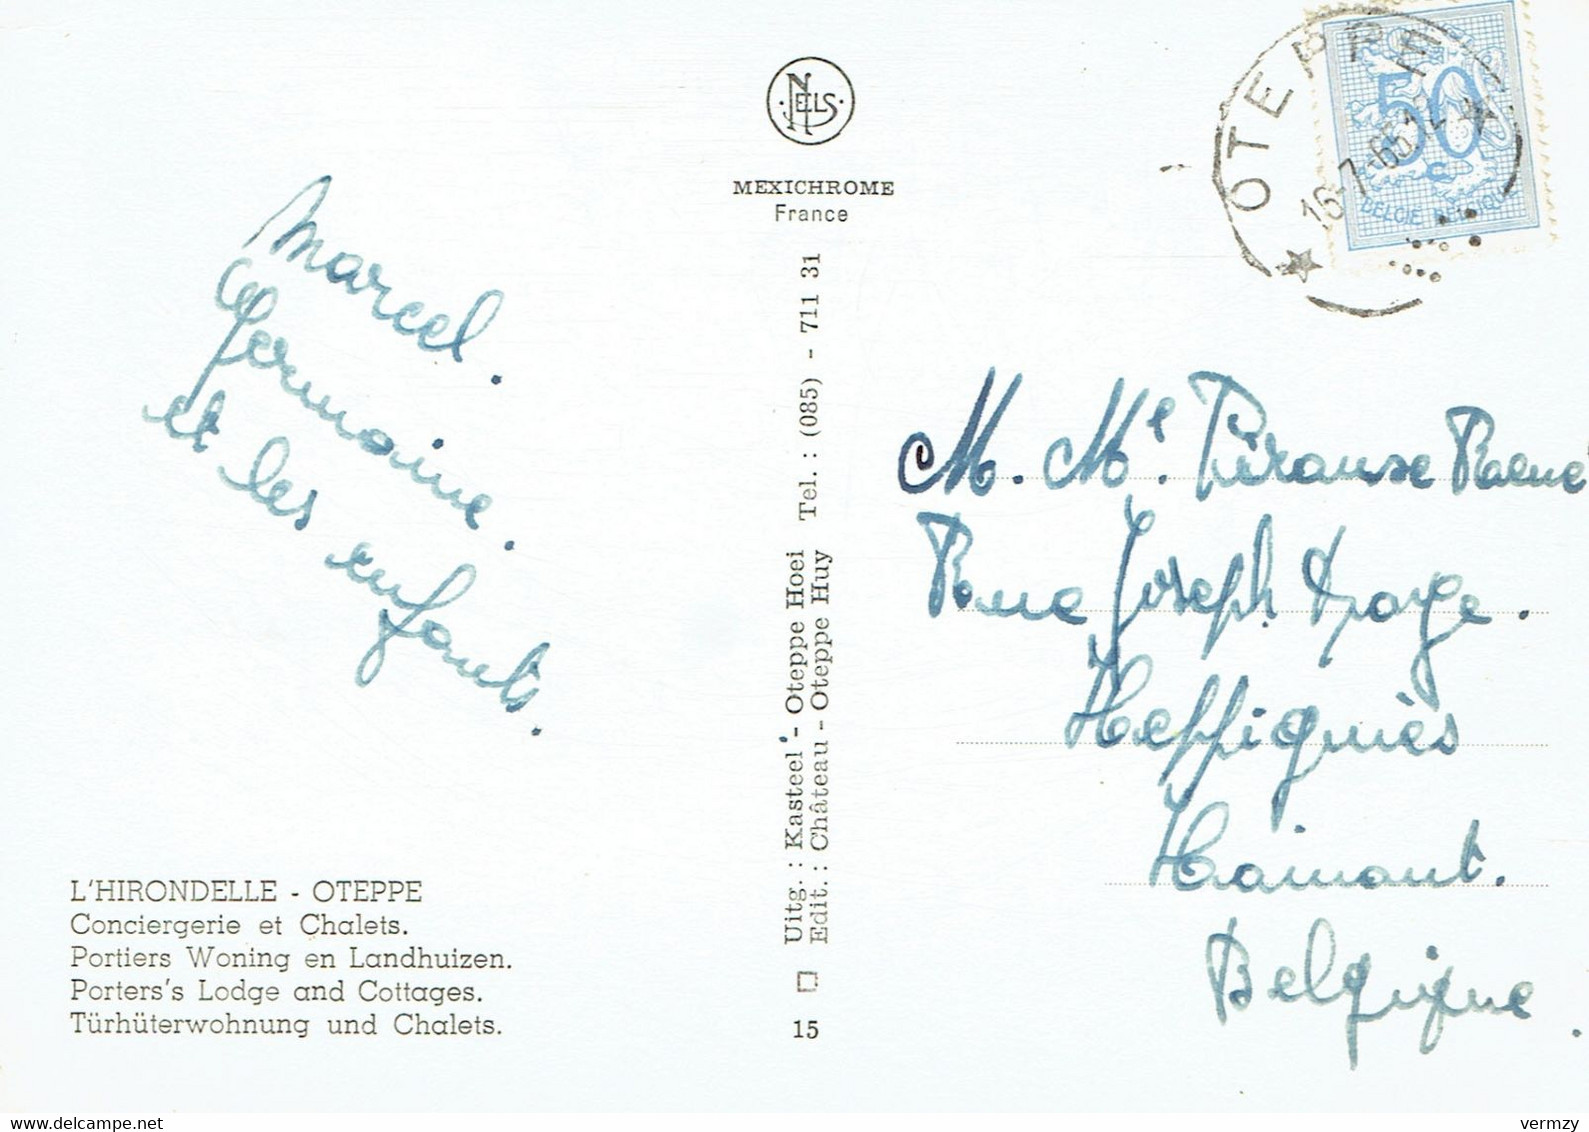 NELS
MEXICHROME
France
OTEPPE
16-7-65 12
50
C
BELGIE BELGIQUE
Marcel.
Germaine.
et les enfants.
M. Me. Pirausse Raene
Rue Joseph
Heffignies
Hainaut.
Belgique.
Uitg. : Kasteel - Oteppe Hoei Tel. : (085) - 711 31
Edit. : Château - Oteppe Huy
15
L'HIRONDELLE - OTEPPE
Conciergerie et Chalets.
Portiers Woning en Landhuizen.
Porters's Lodge and Cottages.
Türhüterwohnung und Chalets.
vermzy